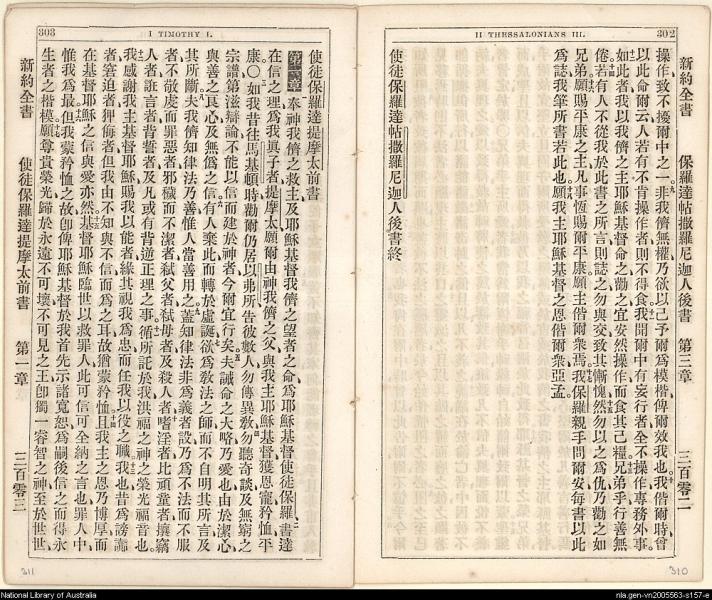 II THESSALONIANS III. 302
新約全書 保羅達帖撒羅尼迦人後書 第三章 三百零二
操作致不擾爾中之一非我儕無權乃欲以己予爾爲模楷俾爾效我也我偕爾時曾
以此命爾云人若有不肯操作者則不得食我聞爾中有妄行者全不操作專務外事
如此者我以我儕之主耶穌基督命之勸之宜安然操作而食其己糧兄弟乎行善無
倦若有人不從我於此書之所言則誌之勿與交致其慚愧然勿以之爲仇乃勸之如
兄弟願賜平康之主凡事恆賜爾平康願主偕爾衆焉我保羅親手問爾安每書以此
爲誌我筆所書若此也願我主耶穌基督之恩偕爾衆亞孟
使徒保羅達帖撒羅尼迦人後書終
310
303 I TIMOTHY I.
使徒保羅達提摩太前書
第一章 奉神我儕之救主及耶穌基督我儕之望者之命爲耶穌基督使徒保羅書達
在信之理爲我眞子者提摩太願爾由神我儕之父與我主耶穌基督獲恩寵矜恤平
康〇如我昔往馬基頓時勸爾仍居以弗所告彼數人勿傳異敎勿聽奇談及無窮之
宗譜第滋辯論不能以信而建於神者今爾宜行矣夫誡命之大略乃愛也由於潔心
與善之良心及無僞之信有人棄此而轉於虛誕欲爲敎法之師而不自明其所言及
其所斷夫我儕知律法乃善惟人當善用之蓋知律法非爲義者設乃爲不法而不服
者不敬虔而罪惡者邪穢而不潔者弒父者弒母者及殺人者嗜淫者比頑童者攘竊
人者謊言者背誓者及凡或有背逆正理之事循所託於我洪福之神之榮光福音也
我感謝我主基督耶穌賜我以能者緣其視我爲忠而任我以役之職我也昔爲謗讟
者窘迫者狎侮者但我由不知與不信而爲之耳故猶蒙矜恤且我主之恩乃博厚而
在基督耶穌之信與愛亦然基督耶穌臨世以救罪人此可信可全納之言也罪人中
惟我爲最但我蒙矜恤之故卽俾耶穌基督於我首先示諸寬恕爲嗣後信之而得永
生者之楷模願尊貴榮光歸於永遠不可壞不可見之王卽獨一睿智之神至於世世
新約全書 使徒保羅達提摩太前書 第一章 三百零三
311
National Library of Australia
nla.gen-vn2005563-s157-e